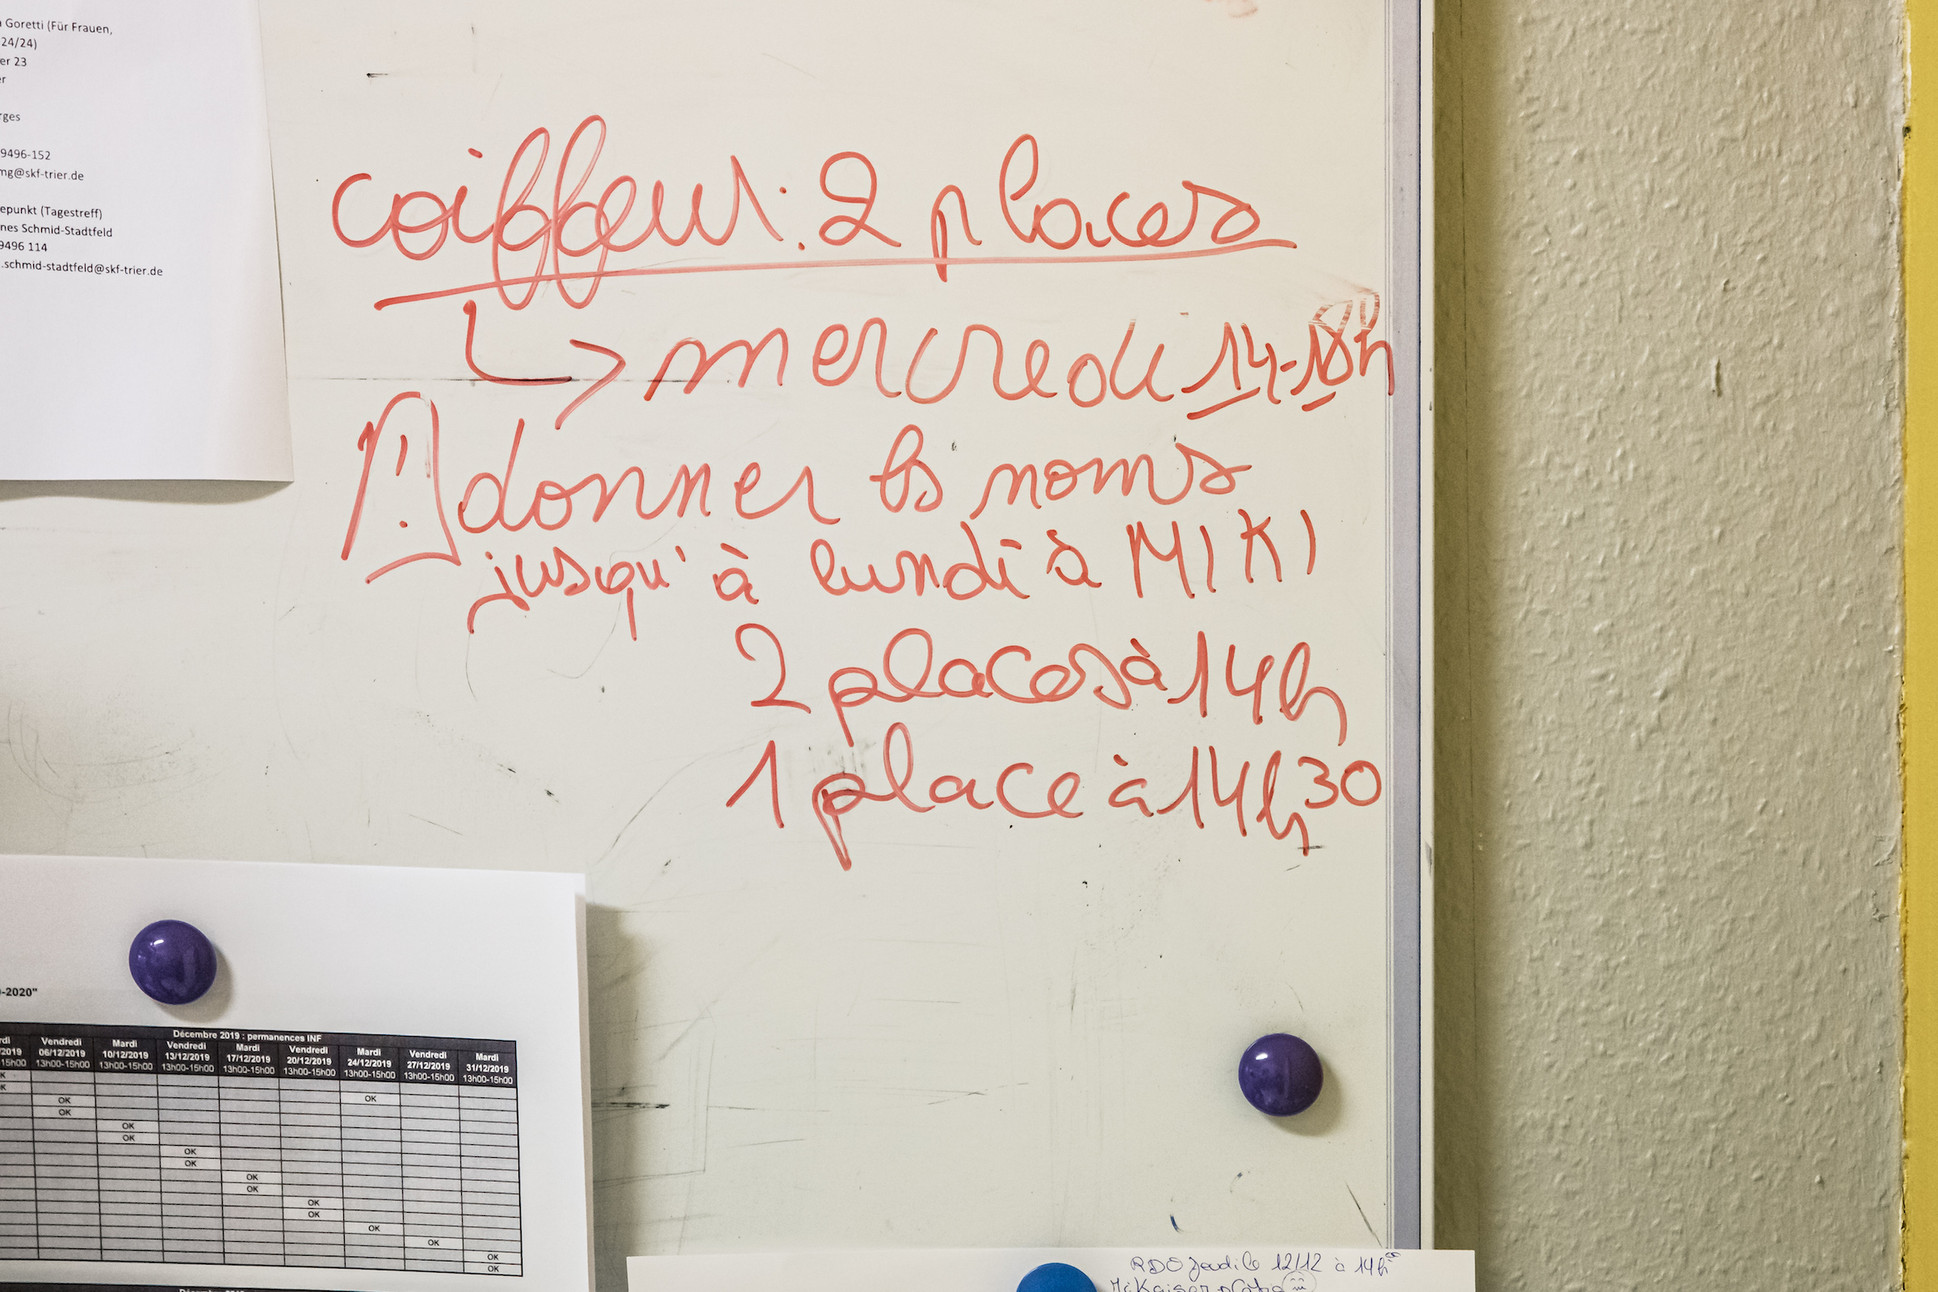 Goretti (Für Frauen,
24/24)
er 23
er
rges
9496-152
mg@skf-trier.de
epunkt (Tagestreff)
nes Schmid-Stadtfeld
9496 114
.schmid-stadtfeld@skf-trier.de
coiffeur: 2 places
mercredi 14-18h
! donner les noms
jusqu'à lundi à MIKI
2 places à 14h
1 place à 14h30
-2020"
Décembre 2019 : permanences INF
rdi Vendredi Mardi Vendredi Mardi Vendredi Mardi Vendredi Mardi
2019 06/12/2019 10/12/2019 13/12/2019 17/12/2019 20/12/2019 24/12/2019 27/12/2019 31/12/2019
-15h00 13h00-15h00 13h00-15h00 13h00-15h00 13h00-15h00 13h00-15h00 13h00-15h00 13h00-15h00 13h00-15h00
K
K
OK OK
OK
OK
OK
OK
OK
OK
OK
OK
OK
OK
OK
OK
OK
RDO Jeudi le 12/12 à 14h